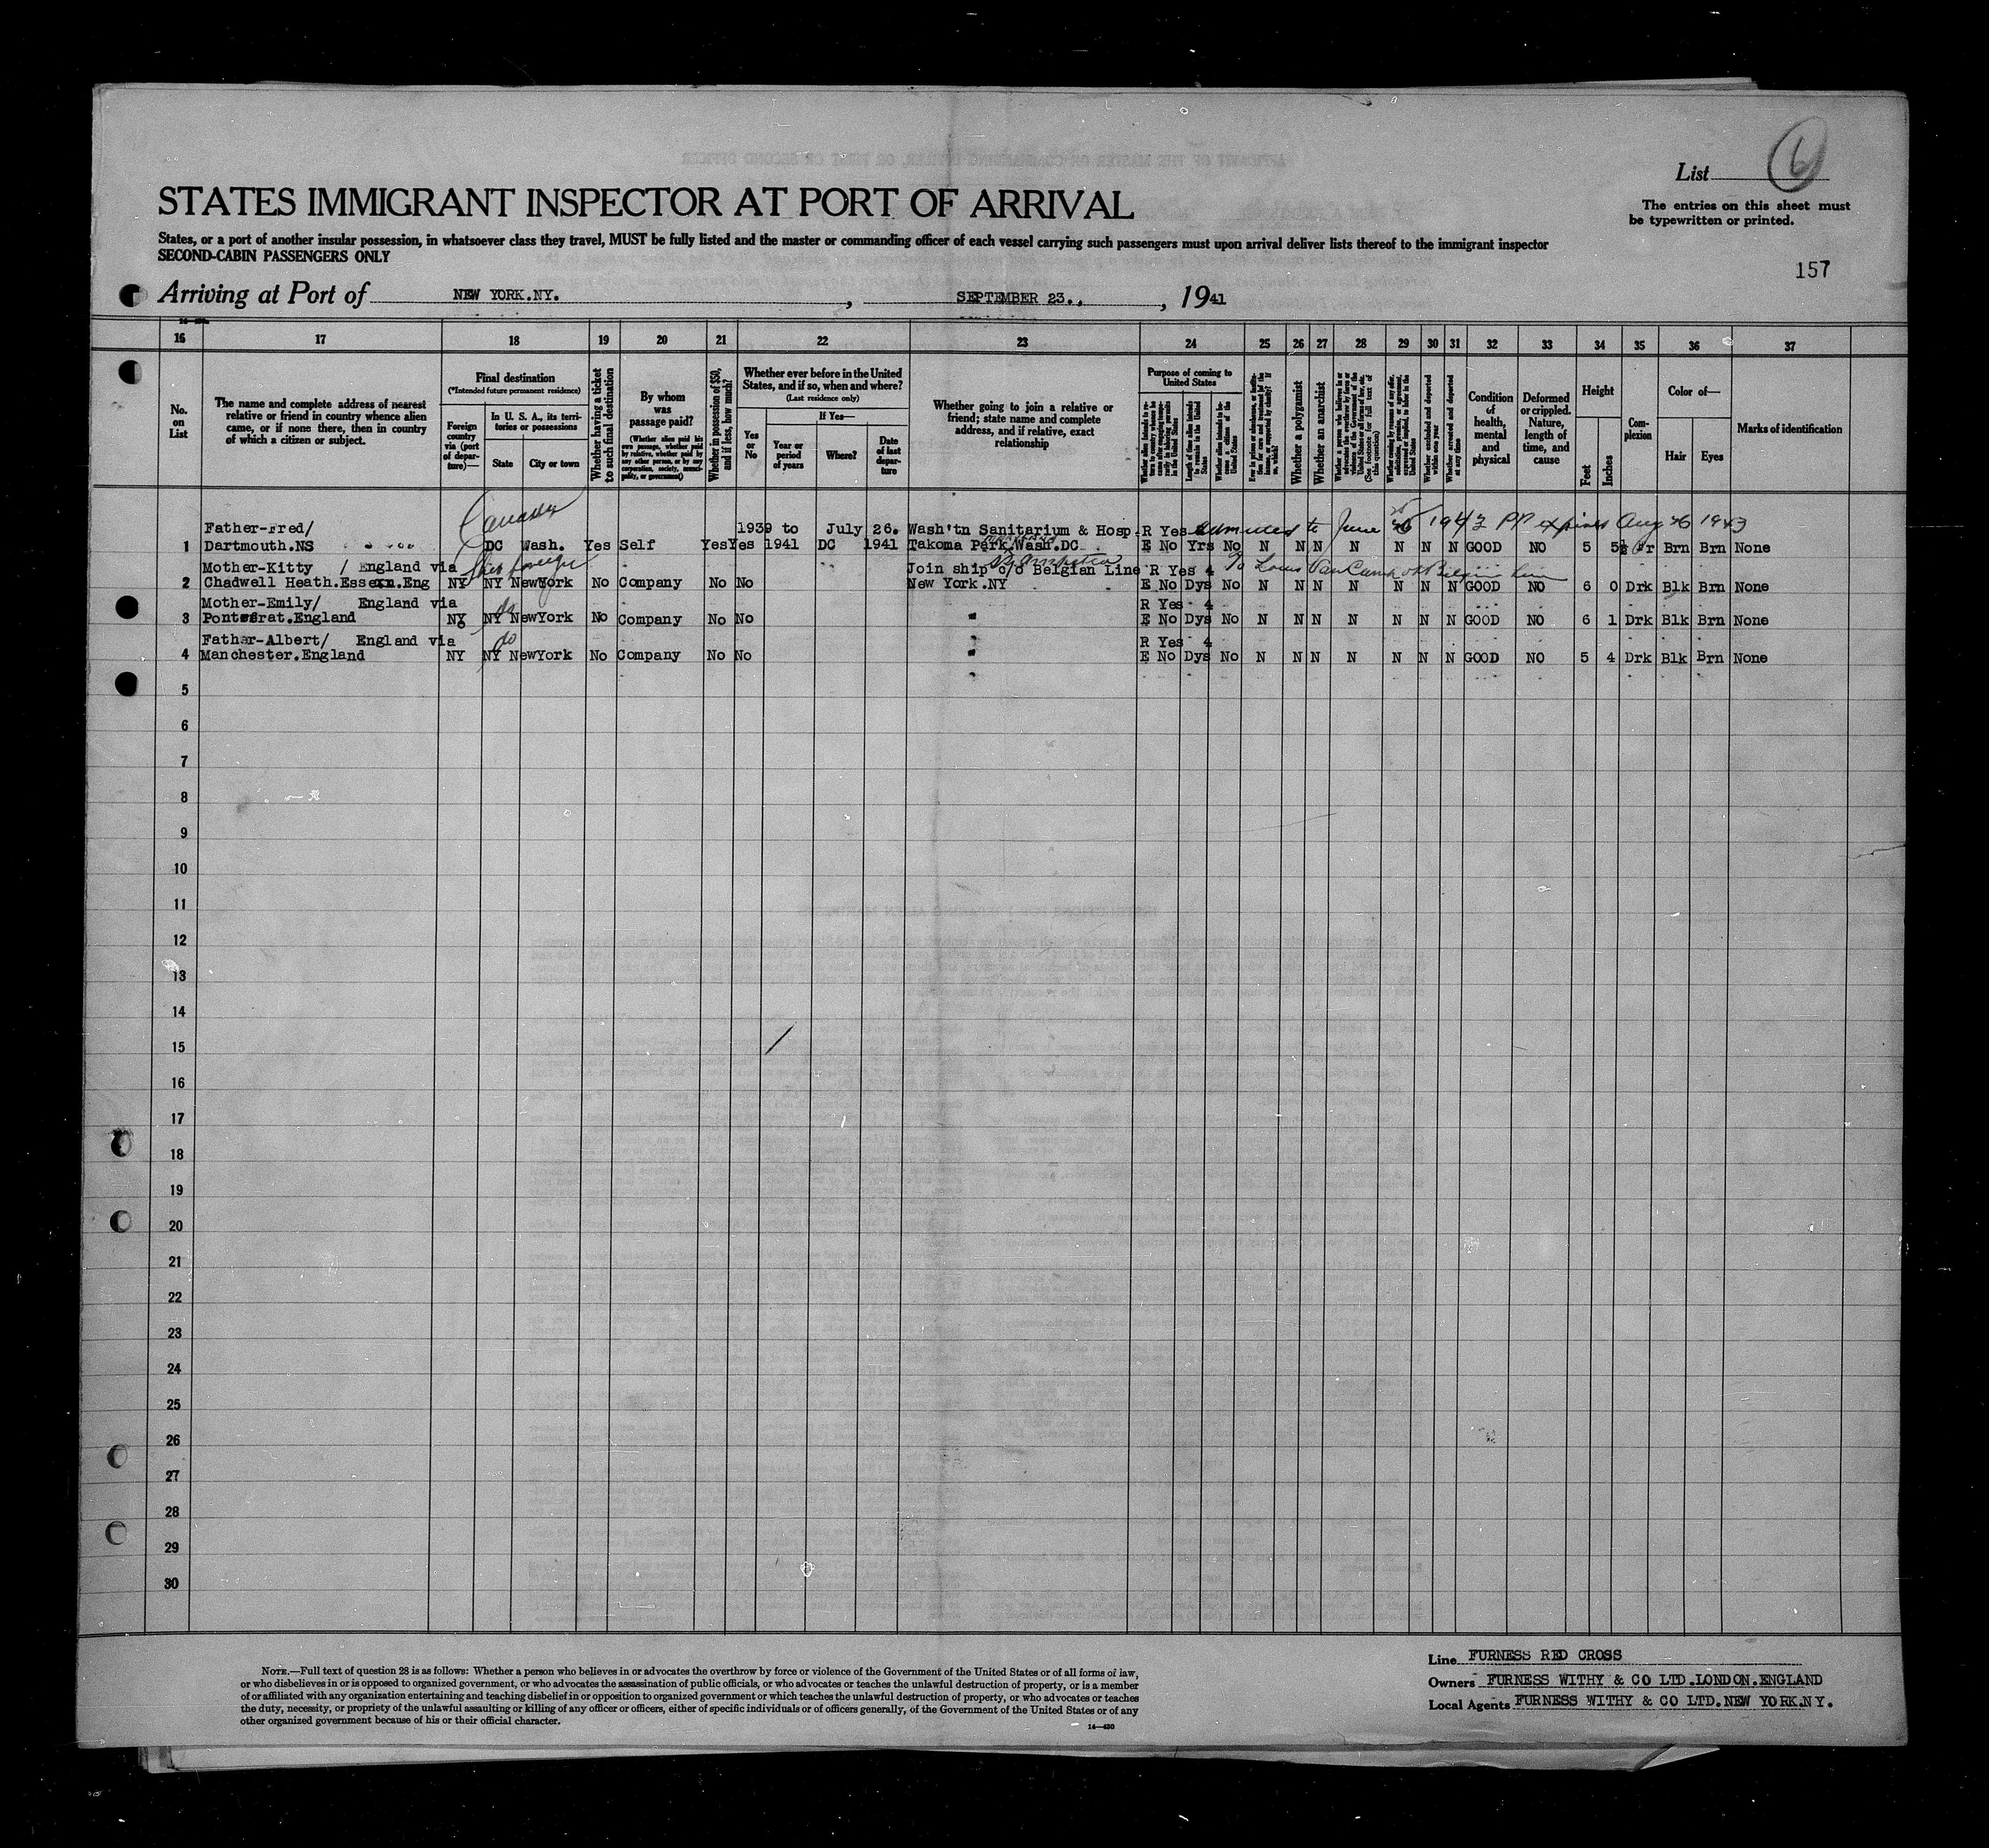 List 6
STATES IMMIGRANT INSPECTOR AT PORT OF ARRIVAL
The entries on this sheet must
be typewritten or printed.
States, or a port of another insular possession, in whatsoever class they travel, MUST be fully listed and the master or commanding officer of each vessel carrying such passengers must upon arrival deliver lists thereof to the immigrant inspector
SECOND-CABIN PASSENGERS ONLY
157
Arriving at Port of NEW YORK.NY. , SEPTEMBER 23., , 1941
16 17 18 19 20 21 22 23 24 25 26 27 28 29 30 31 32 33 34 35 36 37
No. on List
The name and complete address of nearest
relative or friend in country whence alien
came, or if none there, then in country
of which a citizen or subject.
Final destination
(*Intended future permanent residence)
Foreign country via (port of departure)—
In U. S. A., its territories or possessions
State
City or town
Whether having a ticket to such final destination
By whom was passage paid?
(Whether alien paid his own passage, whether paid by relative, whether paid by any other person, or by any corporation, society, municipality, or government)
Whether in possession of $50, and if less, how much?
Whether ever before in the United
States, and if so, when and where?
(Last residence only)
Yes or No
If Yes—
Year or period of years
Where?
Date of last departure
Whether going to join a relative or
friend; state name and complete
address, and if relative, exact
relationship
Purpose of coming to United States
Length of time alien intends to remain in the United States
Whether alien intends to become a citizen of the United States
Whether a polygamist
Whether an anarchist
(See footnote for full text of this question)
Whether excluded and deported within one year
Whether arrested and deported at any time
Condition of health, mental and physical
Deformed or crippled. Nature, length of time, and cause
Height
Feet
Inches
Complexion
Color of—
Hair
Eyes
Marks of identification
Canada
Father-Fred/ 1939 to July 26. Wash'tn Sanitarium & Hosp. R Yes admitted to June 1943 PP expires Aug 26 1943
1 Dartmouth.NS DC Wash. Yes Self Yes Yes 1941 DC 1941 Takoma Park.Wash.DC E No Yrs No N N N N N N N GOOD NO 5 5½ Fr Brn Brn None
Mother-Kitty / England via Join ship c/o Belgian Line R Yes 4 To Louis Van Camp of Belgian Line
2 Chadwell Heath.Essex.Eng NY NY NewYork No Company No No New York.NY E No Dys No N N N N N N N GOOD NO 6 0 Drk Blk Brn None
Mother-Emily/ England via do R Yes 4
3 Pontefrat.England NY NY NewYork No Company No No " E No Dys No N N N N N N N GOOD NO 6 1 Drk Blk Brn None
Father-Albert/ England via do R Yes 4
4 Manchester.England NY NY NewYork No Company No No " E No Dys No N N N N N N N GOOD NO 5 4 Drk Blk Brn None
5
6
7
8
9
10
11
12
13
14
15
16
17
18
19
20
21
22
23
24
25
26
27
28
29
30
NOTE.—Full text of question 28 is as follows: Whether a person who believes in or advocates the overthrow by force or violence of the Government of the United States or of all forms of law,
or who disbelieves in or is opposed to organized government, or who advocates the assassination of public officials, or who advocates or teaches the unlawful destruction of property, or is a member
of or affiliated with any organization entertaining and teaching disbelief in or opposition to organized government or which teaches the unlawful destruction of property, or who advocates or teaches
the duty, necessity, or propriety of the unlawful assaulting or killing of any officer or officers, either of specific individuals or of officers generally, of the Government of the United States or of any
other organized government because of his or their official character.
14—430
Line FURNESS RED CROSS
Owners FURNESS WITHY & CO LTD.LONDON.ENGLAND
Local Agents FURNESS WITHY & CO LTD.NEW YORK.NY.